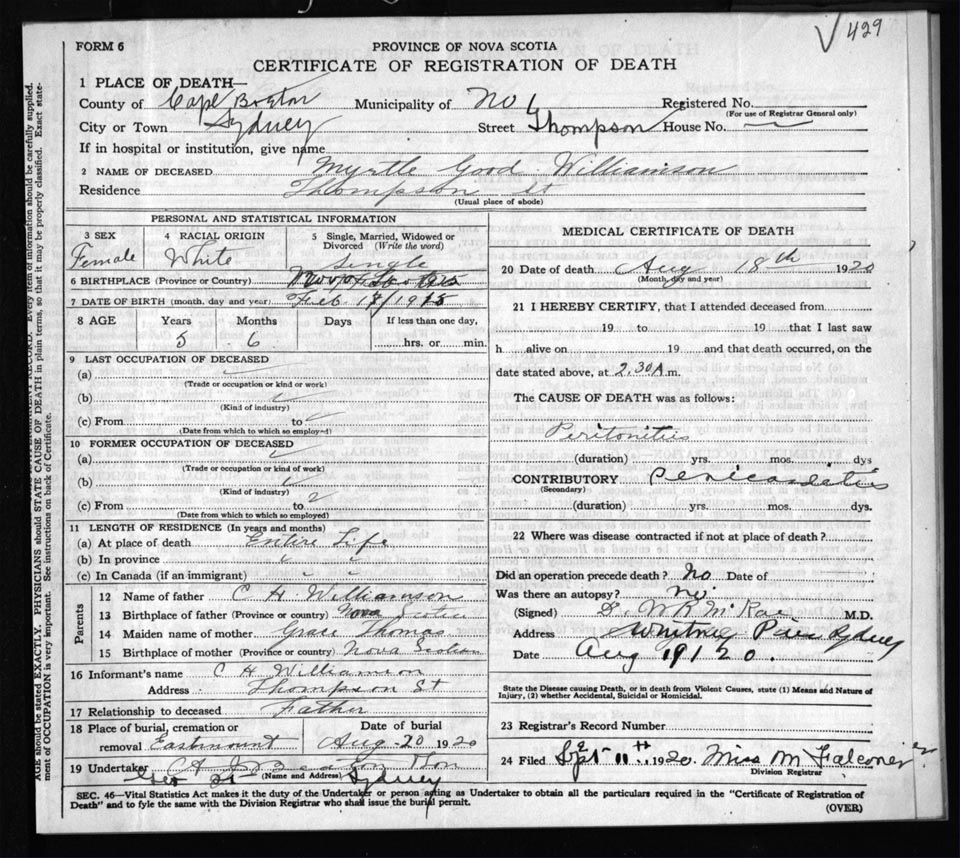 √ 429
FORM 6
PROVINCE OF NOVA SCOTIA
CERTIFICATE OF REGISTRATION OF DEATH
1 PLACE OF DEATH—
County of Cape Breton Municipality of No Registered No.
(For use of Registrar General only)
City or Town Sydney Street Thompson House No.
If in hospital or institution, give name
2 NAME OF DECEASED Myrtle Good Williamson
Residence Thompson St
(Usual place of abode)
PERSONAL AND STATISTICAL INFORMATION
3 SEX Female
4 RACIAL ORIGIN White
5 Single, Married, Widowed or Divorced (Write the word) Single
6 BIRTHPLACE (Province or Country)
7 DATE OF BIRTH (month, day and year) Feb 18/1915
8 AGE Years Months Days If less than one day,
5 6 hrs. or min.
9 LAST OCCUPATION OF DECEASED
(a)
(Trade or occupation or kind or work)
(b)
(Kind of industry)
(c) From to
(Date from which to which so employed)
10 FORMER OCCUPATION OF DECEASED
(a)
(Trade or occupation or kind of work)
(b)
(Kind of industry)
(c) From to
(Date from which to which so employed)
11 LENGTH OF RESIDENCE (In years and months)
(a) At place of death Entire Life
(b) In province
(c) In Canada (if an immigrant)
Parents
12 Name of father C H Williamson
13 Birthplace of father (Province or country) Nova Scotia
14 Maiden name of mother Grace Thomas
15 Birthplace of mother (Province or country) Nova Scotia
16 Informant's name C H Williamson
Address Thompson St
17 Relationship to deceased Father
18 Place of burial, cremation or removal Eastmount
Date of burial Aug 20 1920
19 Undertaker
(Name and Address) Sydney
MEDICAL CERTIFICATE OF DEATH
20 Date of death Aug 18th 1920
(Month, day and year)
21 I HEREBY CERTIFY, that I attended deceased from
19 to 19 that I last saw
h alive on 19 and that death occurred, on the
date stated above, at 2.30 A.m.
The CAUSE OF DEATH was as follows:
Peritonitis
(duration) yrs. mos. dys
CONTRIBUTORY Pericarditis
(Secondary)
(duration) yrs. mos. dys.
22 Where was disease contracted if not at place of death?
Did an operation precede death? No Date of
Was there an autopsy? No
(Signed) W R McRae M.D.
Address Whitney Pier Sydney
Date Aug 19/20.
State the Disease causing Death, or in death from Violent Causes, state (1) Means and Nature of
Injury, (2) whether Accidental, Suicidal or Homicidal.
23 Registrar's Record Number
24 Filed Sept 11th 1920. Miss M Falconer
Division Registrar
SEC. 46—Vital Statistics Act makes it the duty of the Undertaker or person acting as Undertaker to obtain all the particulars required in the "Certificate of Registration of
Death" and to fyle the same with the Division Registrar who shall issue the burial permit. (OVER)
AGE should be stated EXACTLY. PHYSICIANS should STATE CAUSE OF DEATH in plain terms, so that it may be properly classified. Exact state-
ment of OCCUPATION is important. See instructions on back of Certificate.